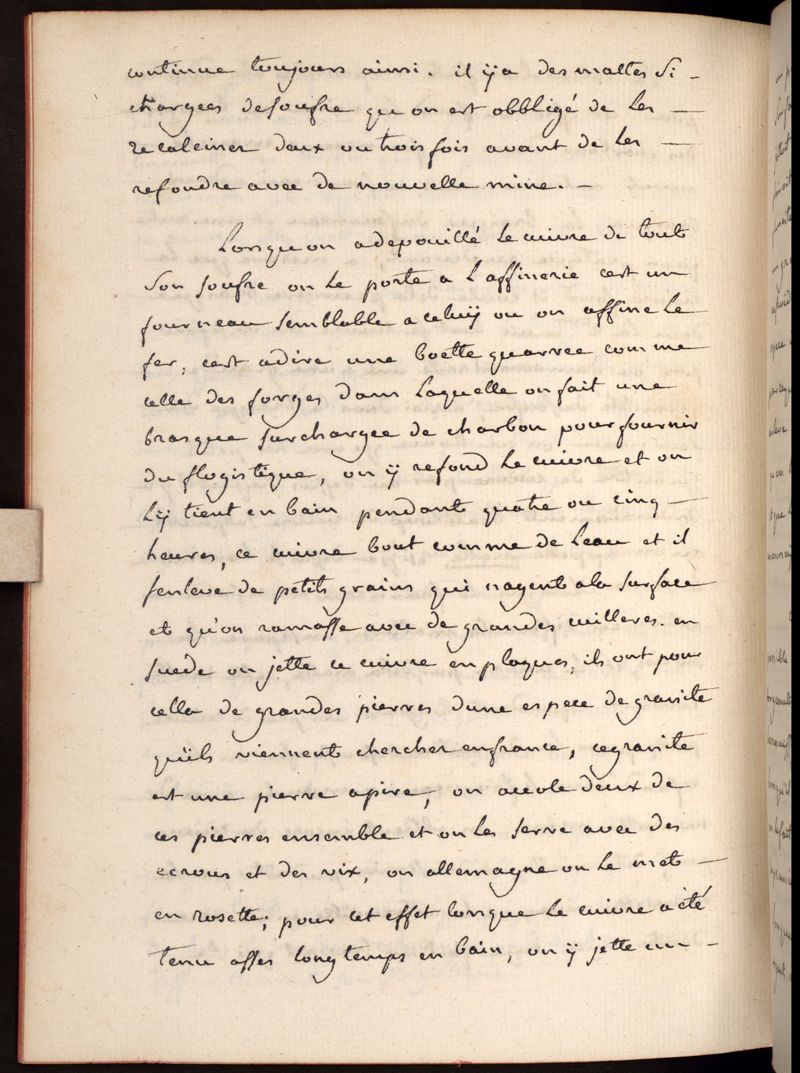 continue toujours ainsi. il ÿ a des mattes si –
chargees de soufre qu on est obbligé de les —
recalciner deux ou trois fois avant de les —
refondre avec de nouvelle mine. –
Lorsqu on a depouillé le cuivre de tout
son soufre on le porte a l affinerie cest un
fourneau semblable a celuÿ ou on affine le
fer, cest adire une boette quarree comme
celle des forges dans laquelle on fait une
brasque surchargee de charbon pour fournir
du flogistique, on ÿ refond le cuivre et on
lÿ tient en bain pendant quatre ou cinq —
heures, ce cuivre bout comme de leau et il
senleve de petits grains qui nagent ala surface
et qu'on ramasse avec de grandes cuilleres. en
suéde on jette ce cuivre en plaques, ils ont pour
cella de grandes pierres dune espece de granite
qu'ils viennent chercher enfrance, ce granite
est une pierre apire, on accole deux de
ces pierres ensemble et on les serre avec des
ecrous et des vix, en allemagne on le met —
en rosette; pour cet effet lorsque le cuivre a été
tenu asses longtemps en bain, on ÿ jette un –